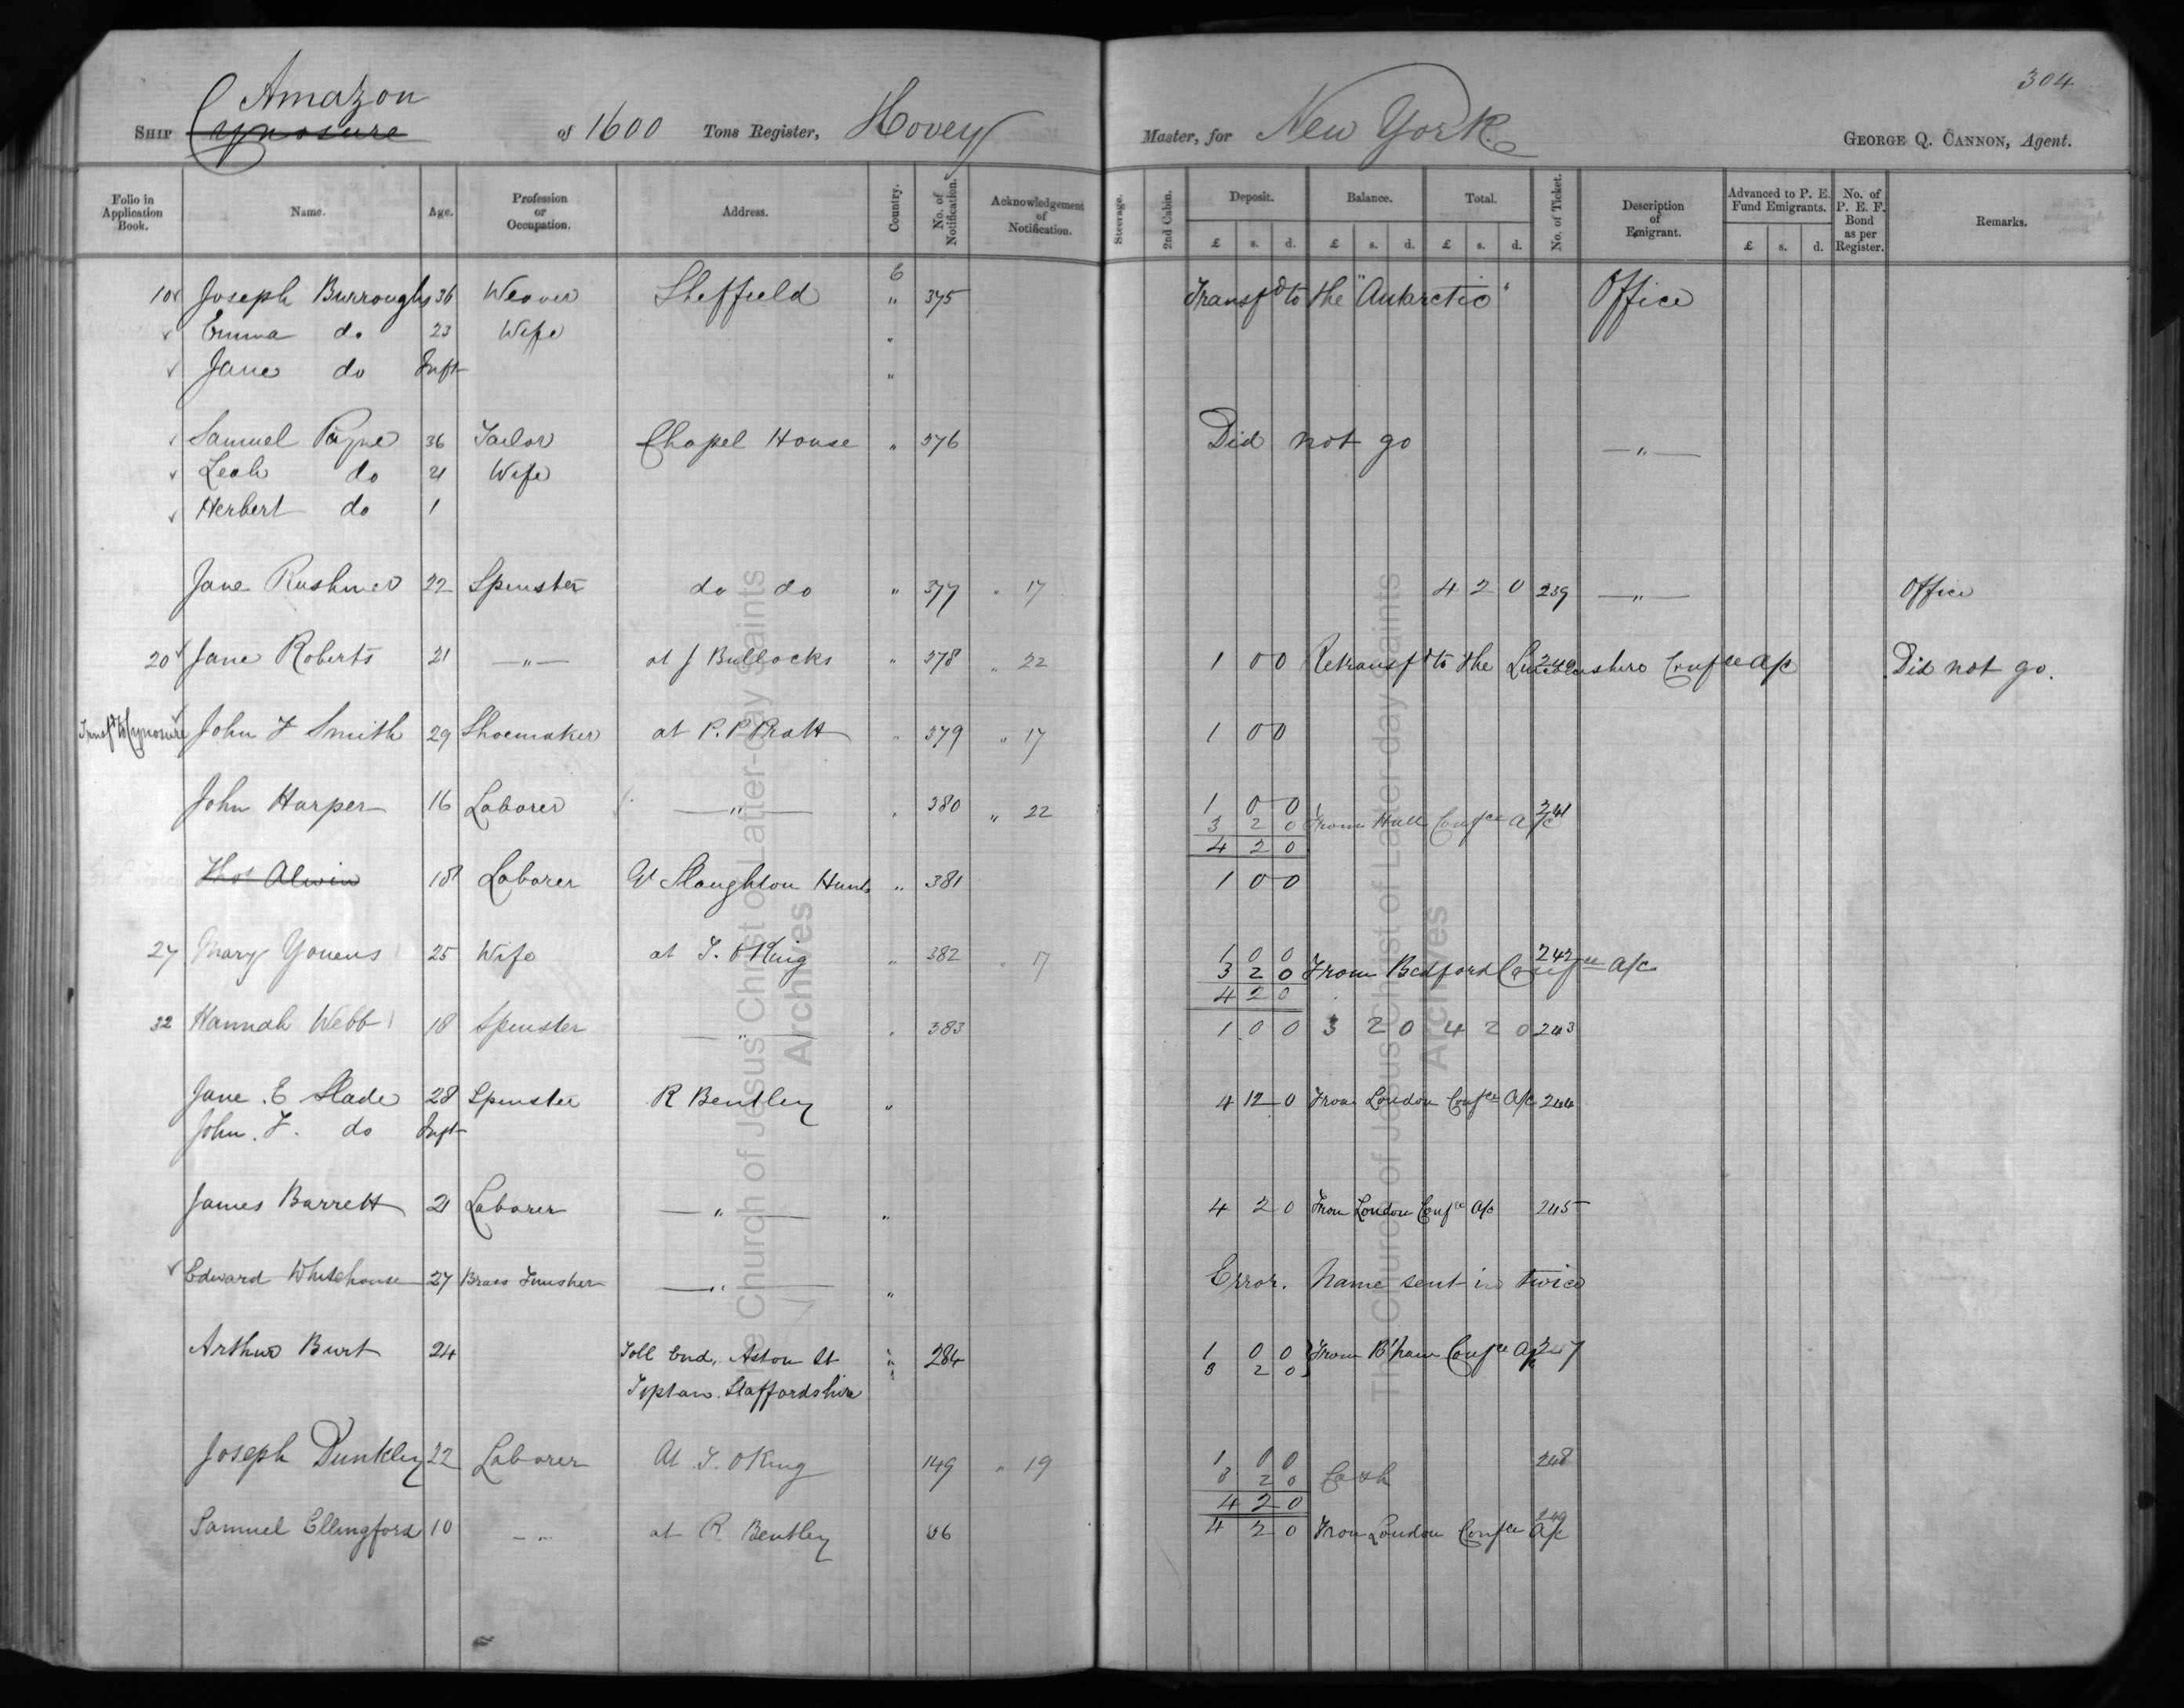 304
Amazon
SHIP Cynosure of 1600 Tons Register, Hovey Master, for New York GEORGE Q. CANNON, Agent.
Folio in Application Book. Name. Age. Profession or Occupation. Address. Country. No. of Notification. Acknowledgement of Notification. Steerage. 2nd Cabin. Deposit. Balance. Total. No. of Ticket. Description of Emigrant. Advanced to P. E. Fund Emigrants. No. of P. E. F. Bond as per Register. Remarks.
£ s. d. £ s. d. £ s. d. £ s. d.
E
10 Joseph Burroughs 36 Weaver Sheffield " 375 Transfd to the "Antarctic" Office
Emma do 23 Wife "
Jane do Inft "
Samuel Payne 36 Tailor Chapel House " 376 Did not go — " —
Leah do 21 Wife
Herbert do 1
Jane Rushmer 22 Spinster do do " 377 " 17 4 2 0 239 — " — Office
20 Jane Roberts 21 — " — at J Bullocks " 378 " 22 1 0 0 Retransfd to the Lincolnshire Confce a/c 240 Did not go.
Transfd to Cynosure John F Smith 29 Shoemaker at P. P Pratt " 379 " 17 1 0 0
John Harper 16 Laborer — " — " 380 " 22 1 0 0 241
3 2 0 From Hull Confce a/c
4 2 0
Thos Alwin 18 Laborer Gt Staughton Hunts " 381 1 0 0
27 Mary Youens 25 Wife at T. O King " 382 " 17 1 0 0 242
3 2 0 From Bedford Confce a/c
4 2 0
32 Hannah Webb 18 Spinster — " — " 383 1 0 0 3 2 0 4 2 0 243
Jane . E Slade 28 Spinster R Bentley " 4 12 0 From London Confce A/c 244
John . F. do Inft
James Barrett 21 Laborer — " — " 4 2 0 From London Confce A/c 245
Edward Whitehouse 27 Brass Finisher — " — " Error. Name sent in twice
Arthur Burt 24 Toll End, Aston St " 284 1 0 0 From B'ham Confce A/c 247
Tipton. Staffordshire 3 2 0
Joseph Dunkley 22 Laborer At T. O King 149 " 19 1 0 0 248
3 2 0 Cash
4 2 0
Samuel Ellingford 10 — " — at R. Bentley 56 4 2 0 From London Confce A/c 249
The Church of Jesus Christ of Latter-day Saints
Archives
The Church of Jesus Christ of Latter-day Saints
Archives